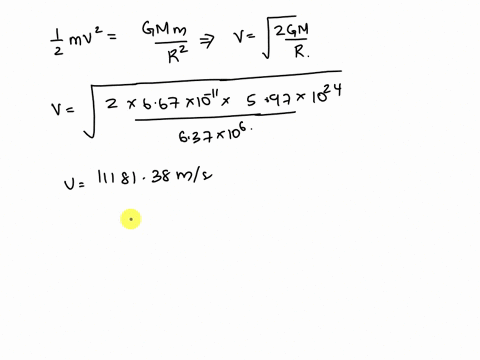 1/2 mv² = GMm/R² ⇒ V = √(2GM/R.)
V = √(2 × 6.67 × 10⁻¹¹ × 5.97 × 10²⁴ / 6.37 × 10⁶.)
V = 11181.38 m/s